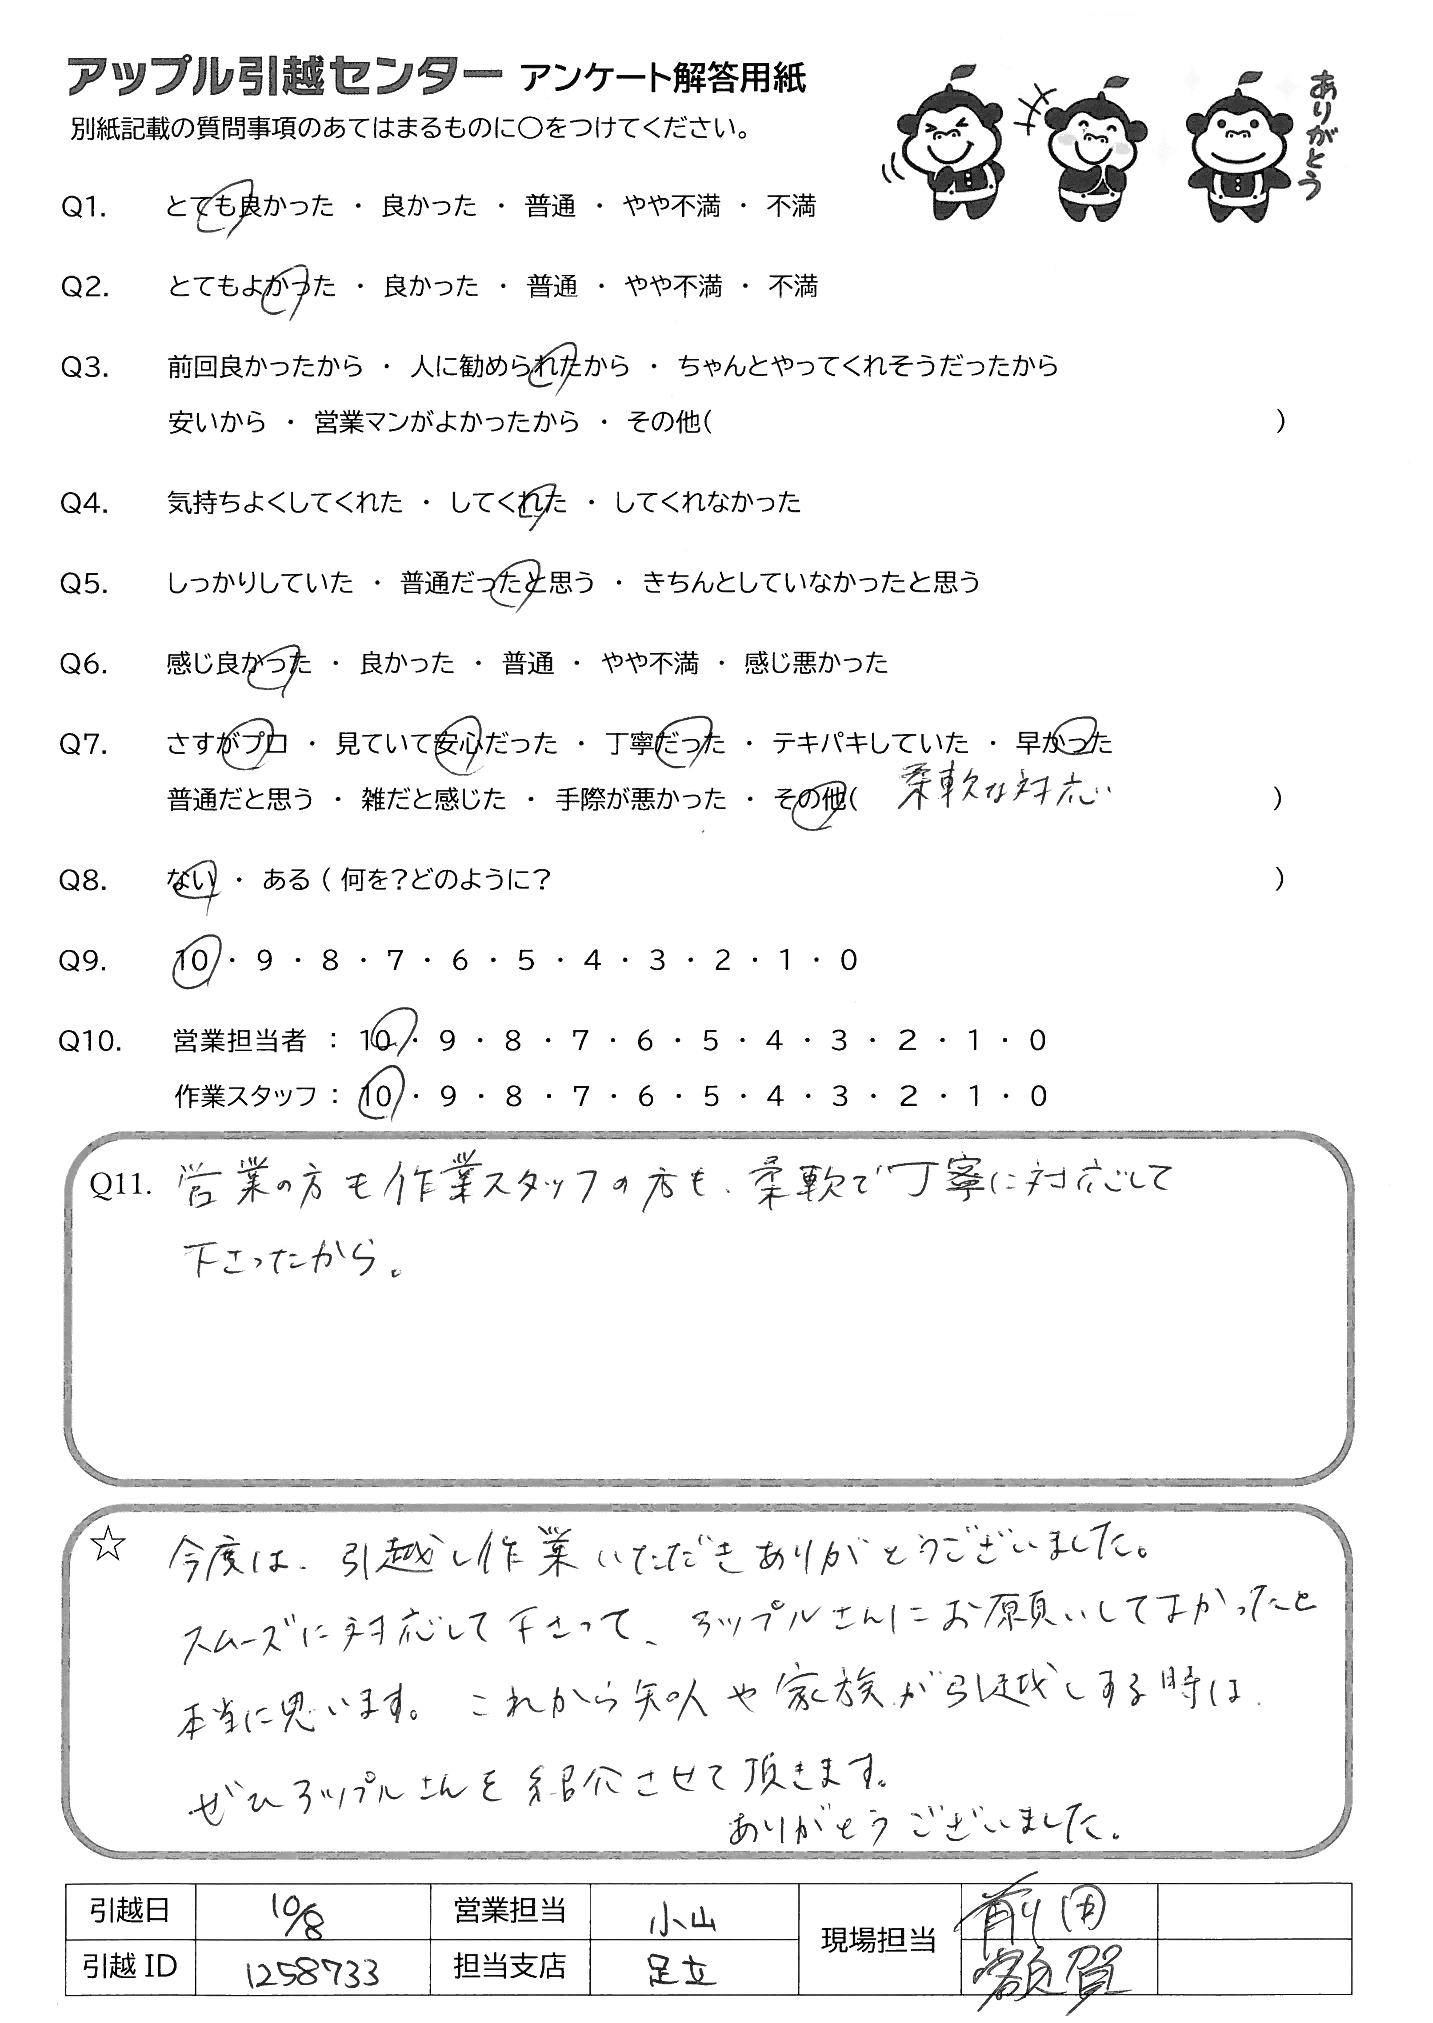 アップル引越センター アンケート解答用紙
別紙記載の質問事項のあてはまるものに○をつけてください。
ありがとう
Q1. とても良かった ・ 良かった ・ 普通 ・ やや不満 ・ 不満
Q2. とてもよかった ・ 良かった ・ 普通 ・ やや不満 ・ 不満
Q3. 前回良かったから ・ 人に勧められたから ・ ちゃんとやってくれそうだったから
安いから ・ 営業マンがよかったから ・ その他( )
Q4. 気持ちよくしてくれた ・ してくれた ・ してくれなかった
Q5. しっかりしていた ・ 普通だったと思う ・ きちんとしていなかったと思う
Q6. 感じ良かった ・ 良かった ・ 普通 ・ やや不満 ・ 感じ悪かった
Q7. さすがプロ ・ 見ていて安心だった ・ 丁寧だった ・ テキパキしていた ・ 早かった
普通だと思う ・ 雑だと感じた ・ 手際が悪かった ・ その他( 柔軟な対応 )
Q8. ない ・ ある ( 何を?どのように? )
Q9. 10 ・ 9 ・ 8 ・ 7 ・ 6 ・ 5 ・ 4 ・ 3 ・ 2 ・ 1 ・ 0
Q10. 営業担当者 : 10 ・ 9 ・ 8 ・ 7 ・ 6 ・ 5 ・ 4 ・ 3 ・ 2 ・ 1 ・ 0
作業スタッフ : 10 ・ 9 ・ 8 ・ 7 ・ 6 ・ 5 ・ 4 ・ 3 ・ 2 ・ 1 ・ 0
Q11. 営業の方も作業スタッフの方も、柔軟で丁寧に対応して
下さったから。
☆ 今度は、引越し作業いただきありがとうございました。
スムーズに対応して下さって、アップルさんにお願いしてよかったと
本当に思います。これから知人や家族が引越しする時は、
ぜひアップルさんを紹介させて頂きます。
ありがとうございました。
引越日 10/8 営業担当 小山 現場担当 前田
引越 ID 1258733 担当支店 足立 額賀